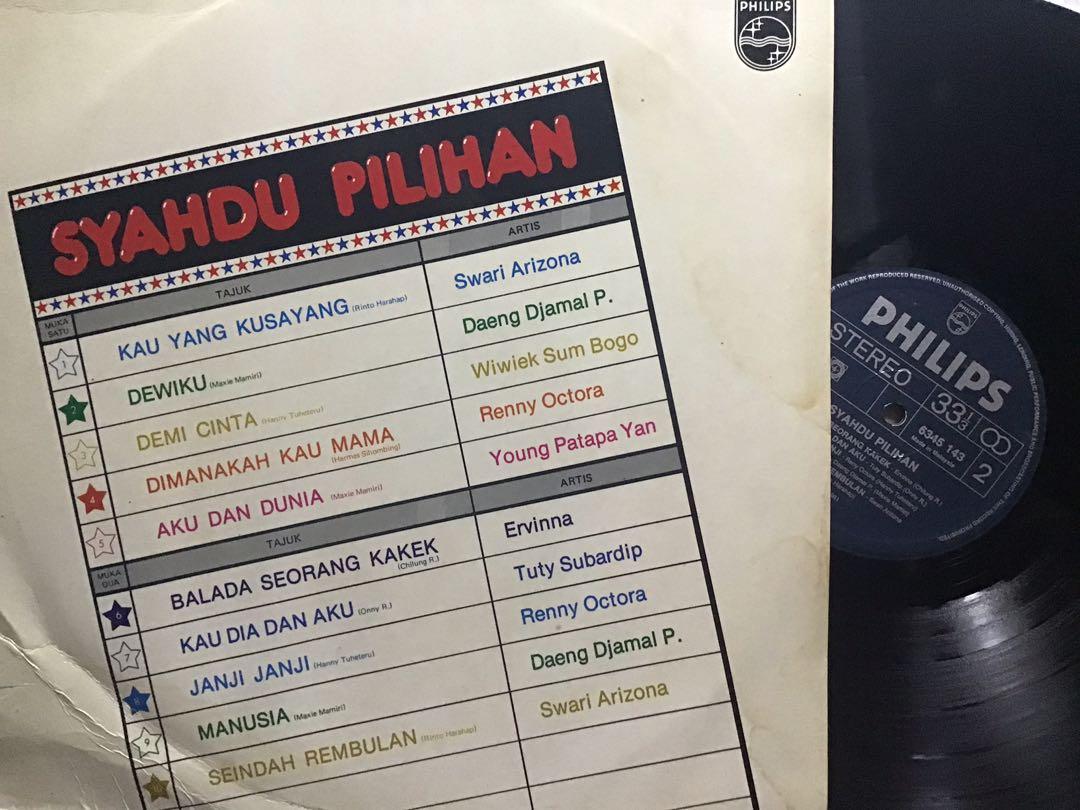 PHILIPS
SYAHDU PILIHAN
MUKA SATU TAJUK ARTIS
1 KAU YANG KUSAYANG (Rinto Harahap) Swari Arizona
2 DEWIKU (Maxie Mamiri) Daeng Djamal P.
3 DEMI CINTA (Hanny Tuheteru) Wiwiek Sum Bogo
4 DIMANAKAH KAU MAMA (Hermes Sihombing) Renny Octora
5 AKU DAN DUNIA (Maxie Mamiri) Young Patapa Yan
MUKA DUA TAJUK ARTIS
6 BALADA SEORANG KAKEK (Chilung R.) Ervinna
7 KAU DIA DAN AKU (Onny R.) Tuty Subardip
8 JANJI JANJI (Hanny Tuheteru) Renny Octora
9 MANUSIA (Maxie Mamiri) Daeng Djamal P.
10 SEINDAH REMBULAN (Rinto Harahap) Swari Arizona
OF THE WORK REPRODUCED RESERVED. UNAUTHORISED COPYING,
PHILIPS
STEREO
33 1/3
6345 143
Made in Malaysia
2
SYAHDU PILIHAN
SEORANG KAKEK - Ervinna (Chilung R.)
DAN AKU - Tuty Subardip (Onny R.)
JANJI - Renny Octora (Hanny Tuheteru)